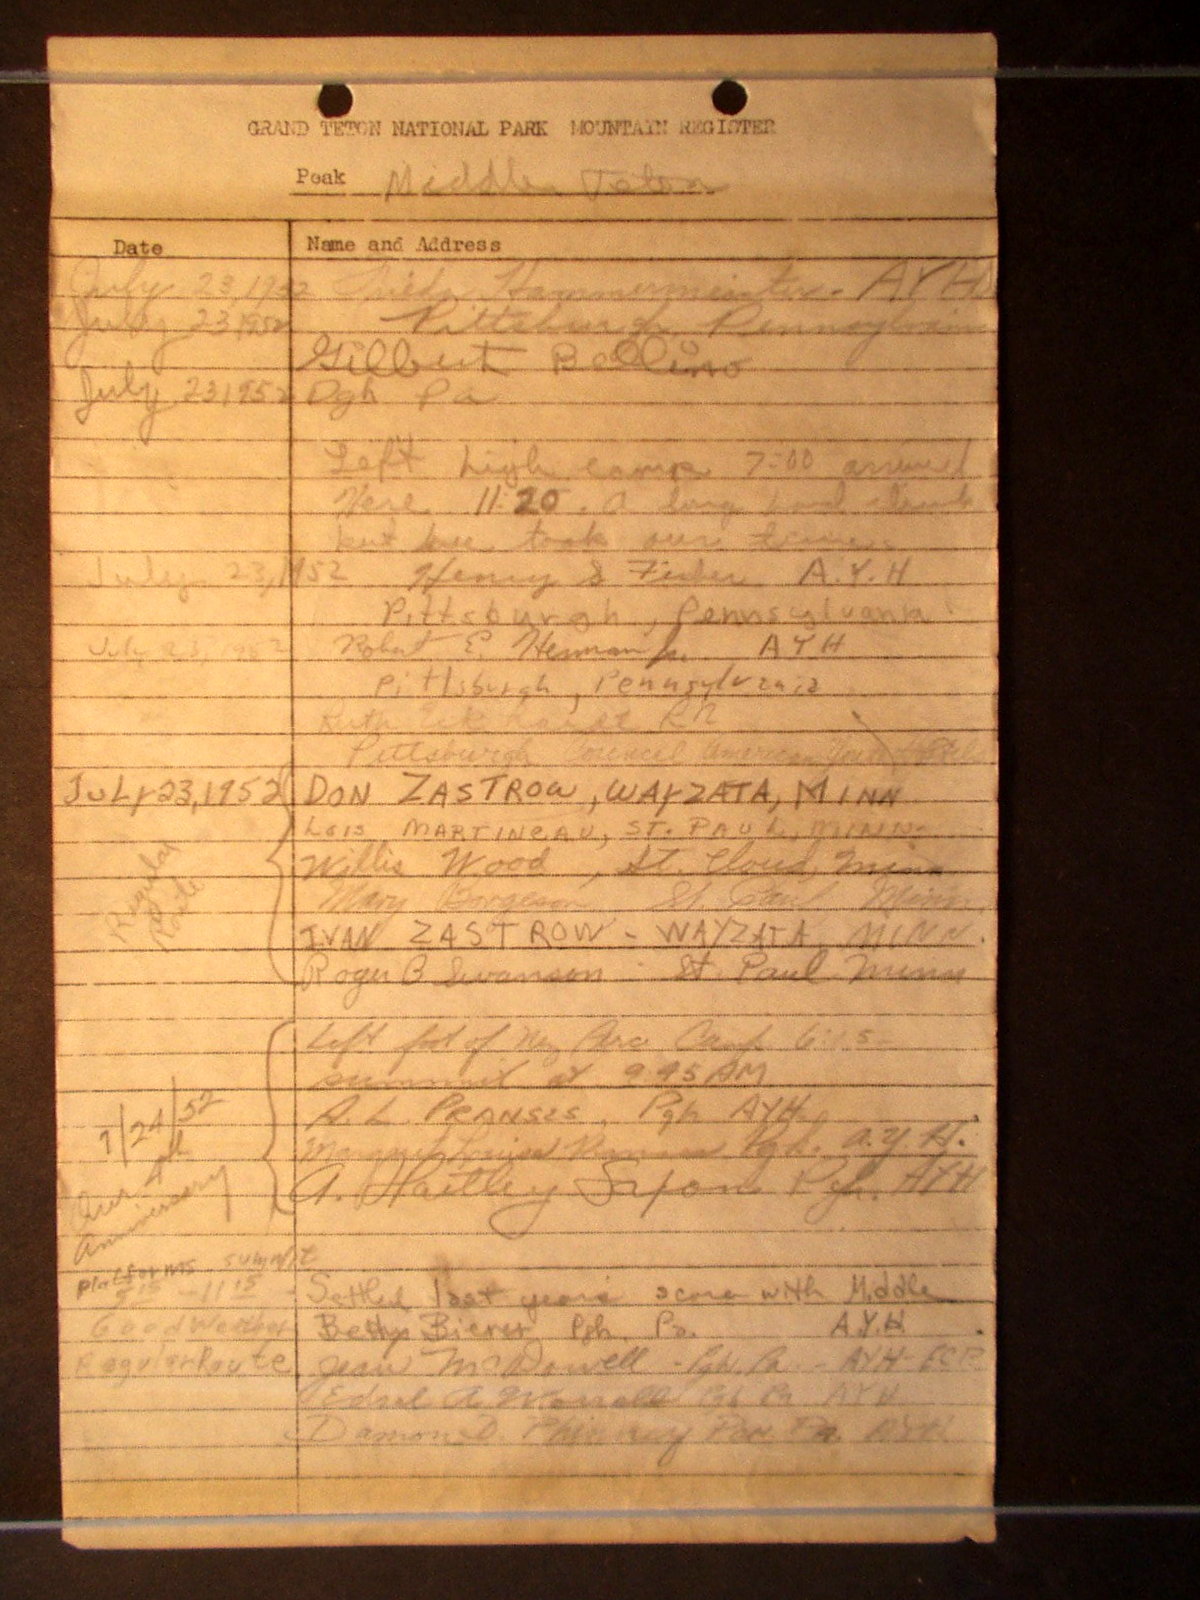 GRAND TETON NATIONAL PARK MOUNTAIN REGISTER
Peak Middle Teton
Date Name and Address
July 23, 1952 Hammermeister - AYH
July 23 1952 Pittsburgh Pennsylvania
Gilbert Bellino
July 23 1952 Pgh Pa
Left high camp 7:00 arrived
Here 11:20. A long hard climb
but we took our time.
July 23, 1952 Henry S A.Y.H
Pittsburgh, Pennsylvania
July 23, 1952 Robert E. Herman Jr. AYH
Pittsburgh, Pennsylvania
Ruth RN
Pittsburgh Council American Youth Hostels
July 23, 1952 DON ZASTROW, WAYZATA, MINN
LOIS MARTINEAU, ST. PAUL, MINN.
Regular Route
Willis Wood, St. Cloud, Minn
Mary Borgeson St. Paul Minn.
IVAN ZASTROW - WAYZATA, MINN.
Roger B Swanson St. Paul Minn
Left foot of Camp 6:15
summit at 9:45 AM
7/24/52 A. L. Pgh AYH
Our 4th Anniversary
Pgh. A.Y.H.
A. Hartley Pgh. AYH
Platforms summit
5 15 - 11 15 Settled last years score with Middle
Good Weather Betty Pgh. Pa. A.Y.H.
Regular Route Jean McDowell - Pgh. Pa. - AYH-
A Pgh Pa AYH
Damon D. Phinney Pa. AYH